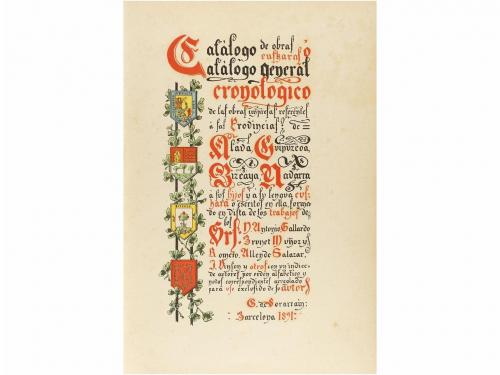 Catálogo de obras
euskaras o
Catálogo general
cronologico
de las obras impresas referentes
á las Provincias de
Alava Guipuzcoa,
Bizcaya Nabarra
a sus hijos y a su lengua eus-
kara o escritos en ella, formado
en vista de los trabajos de
los
Srs. D. Antonio Gallardo
Brunet Muñoz y
Romero, Allende Salazar,
J. Vinson y otros con un indice
de autores por orden alfabético y
notas correspondientes arreglado
para uso exclusivo de su autor
G. de Sorarrain:
Barcelona 1891.